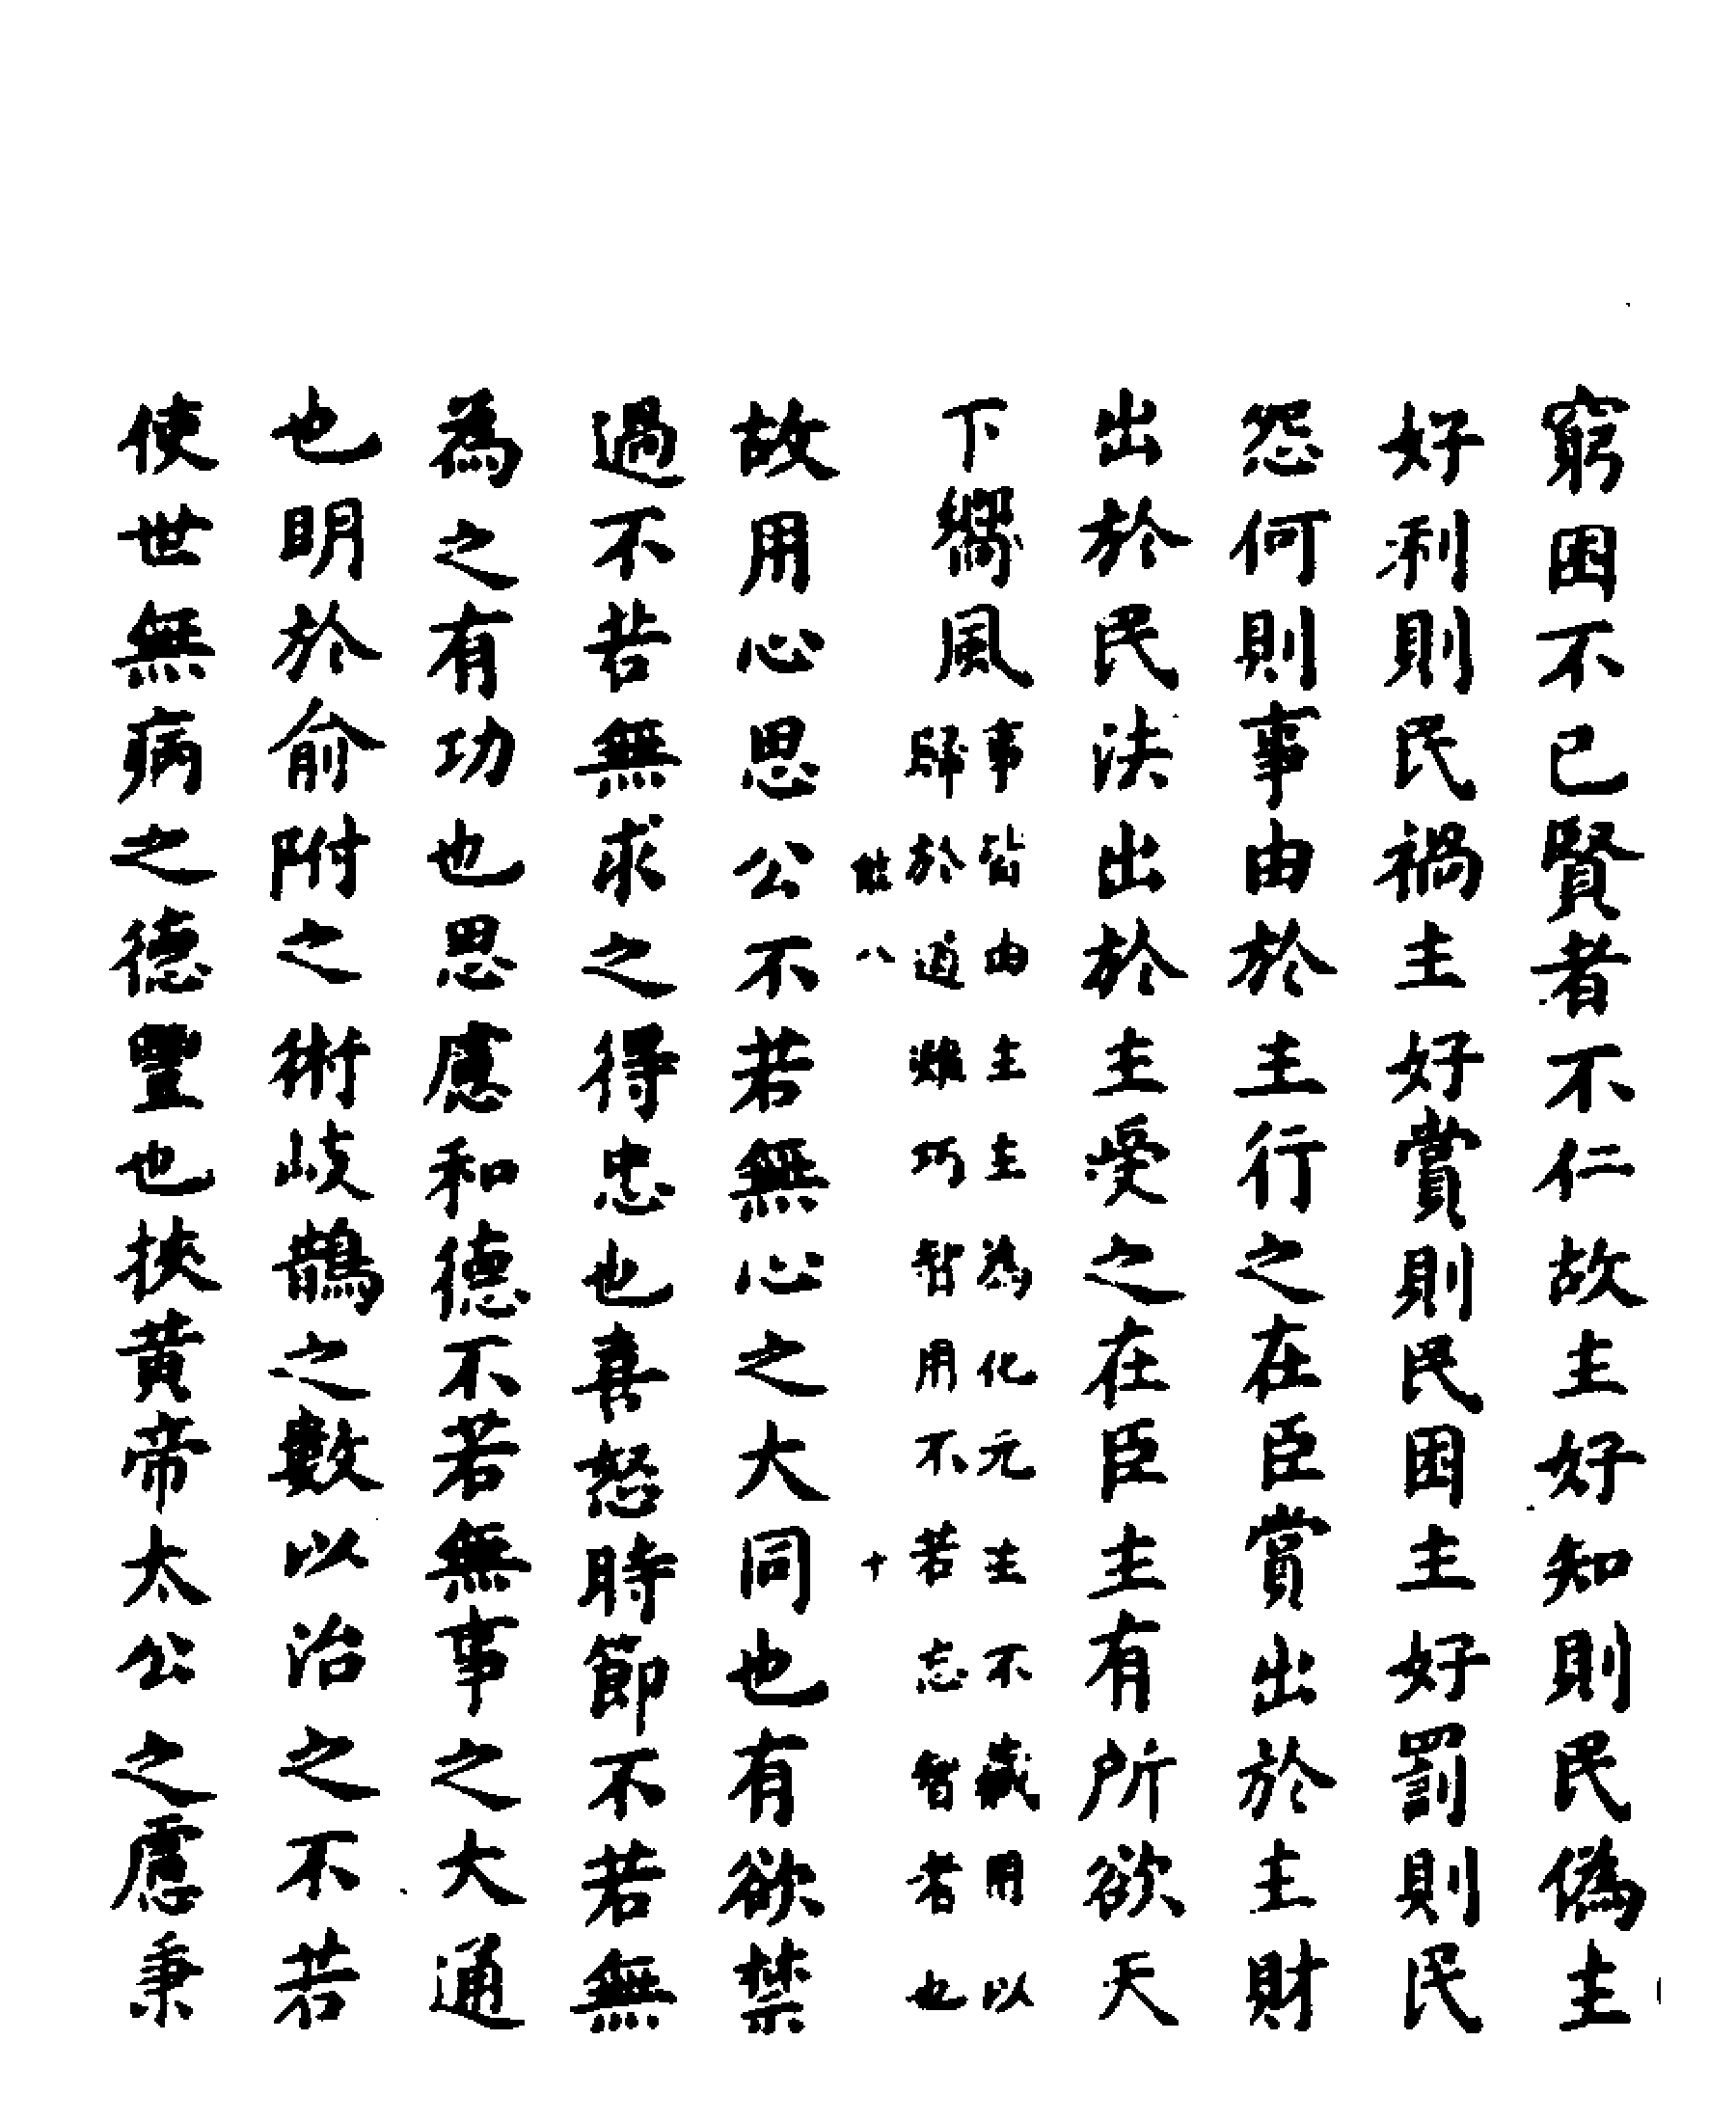 窮困不已賢者不仁故主好知則民偽主
好利則民禍主好賞則民困主好罰則民
怨何則事由於主行之在臣賞出於主財
出於民法出於主受之在臣主有所欲天
下嚮風
事皆由主主為化元主不藏用以
歸於道雖巧智用不若忘智者也
八
十
故用心思公不若無心之大同也有欲禁
過不若無求之得忠也喜怒時節不若無
為之有功也思慮和德不若無事之大通
也明於俞附之術岐鵲之數以治之不若
使世無病之德豐也挾黃帝太公之慮秉